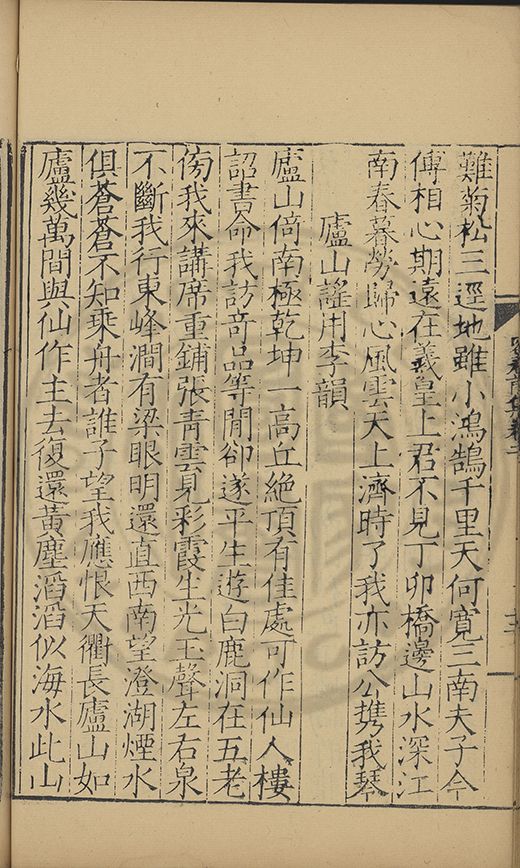 難菊松三逕地雖小鴻鵠千里天何寬三南夫子今
傅相心期遠在羲皇上君不見丁卯橋邊山水深江
南春暮勞歸心風雲天上濟時了我亦訪公携我琴
廬山謠用李韻
廬山倚南極乾坤一高丘絶頂有佳處可作仙人樓
詔書命我訪奇品等閒卻遂平生遊白鹿洞在五老
傍我來講席重鋪張青雲見彩霞生光玉聲左右泉
不斷我行東峰澗有梁眼明還直西南望澄湖煙水
俱蒼蒼不知乘舟者誰子望我應恨天衢長廬山如
廬幾萬間與仙作主去復還黃塵滔滔似海水此山